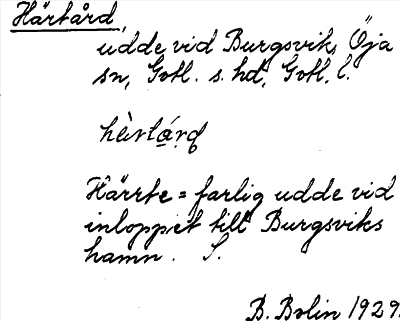 Härtård,
udde vid Burgsvik, Öja
sn, Gotl. s. hd, Gotl. l.
hèrtárd
Härrte = farlig udde vid
inloppet till Burgsviks
hamn. S.
B. Bolin 1929.